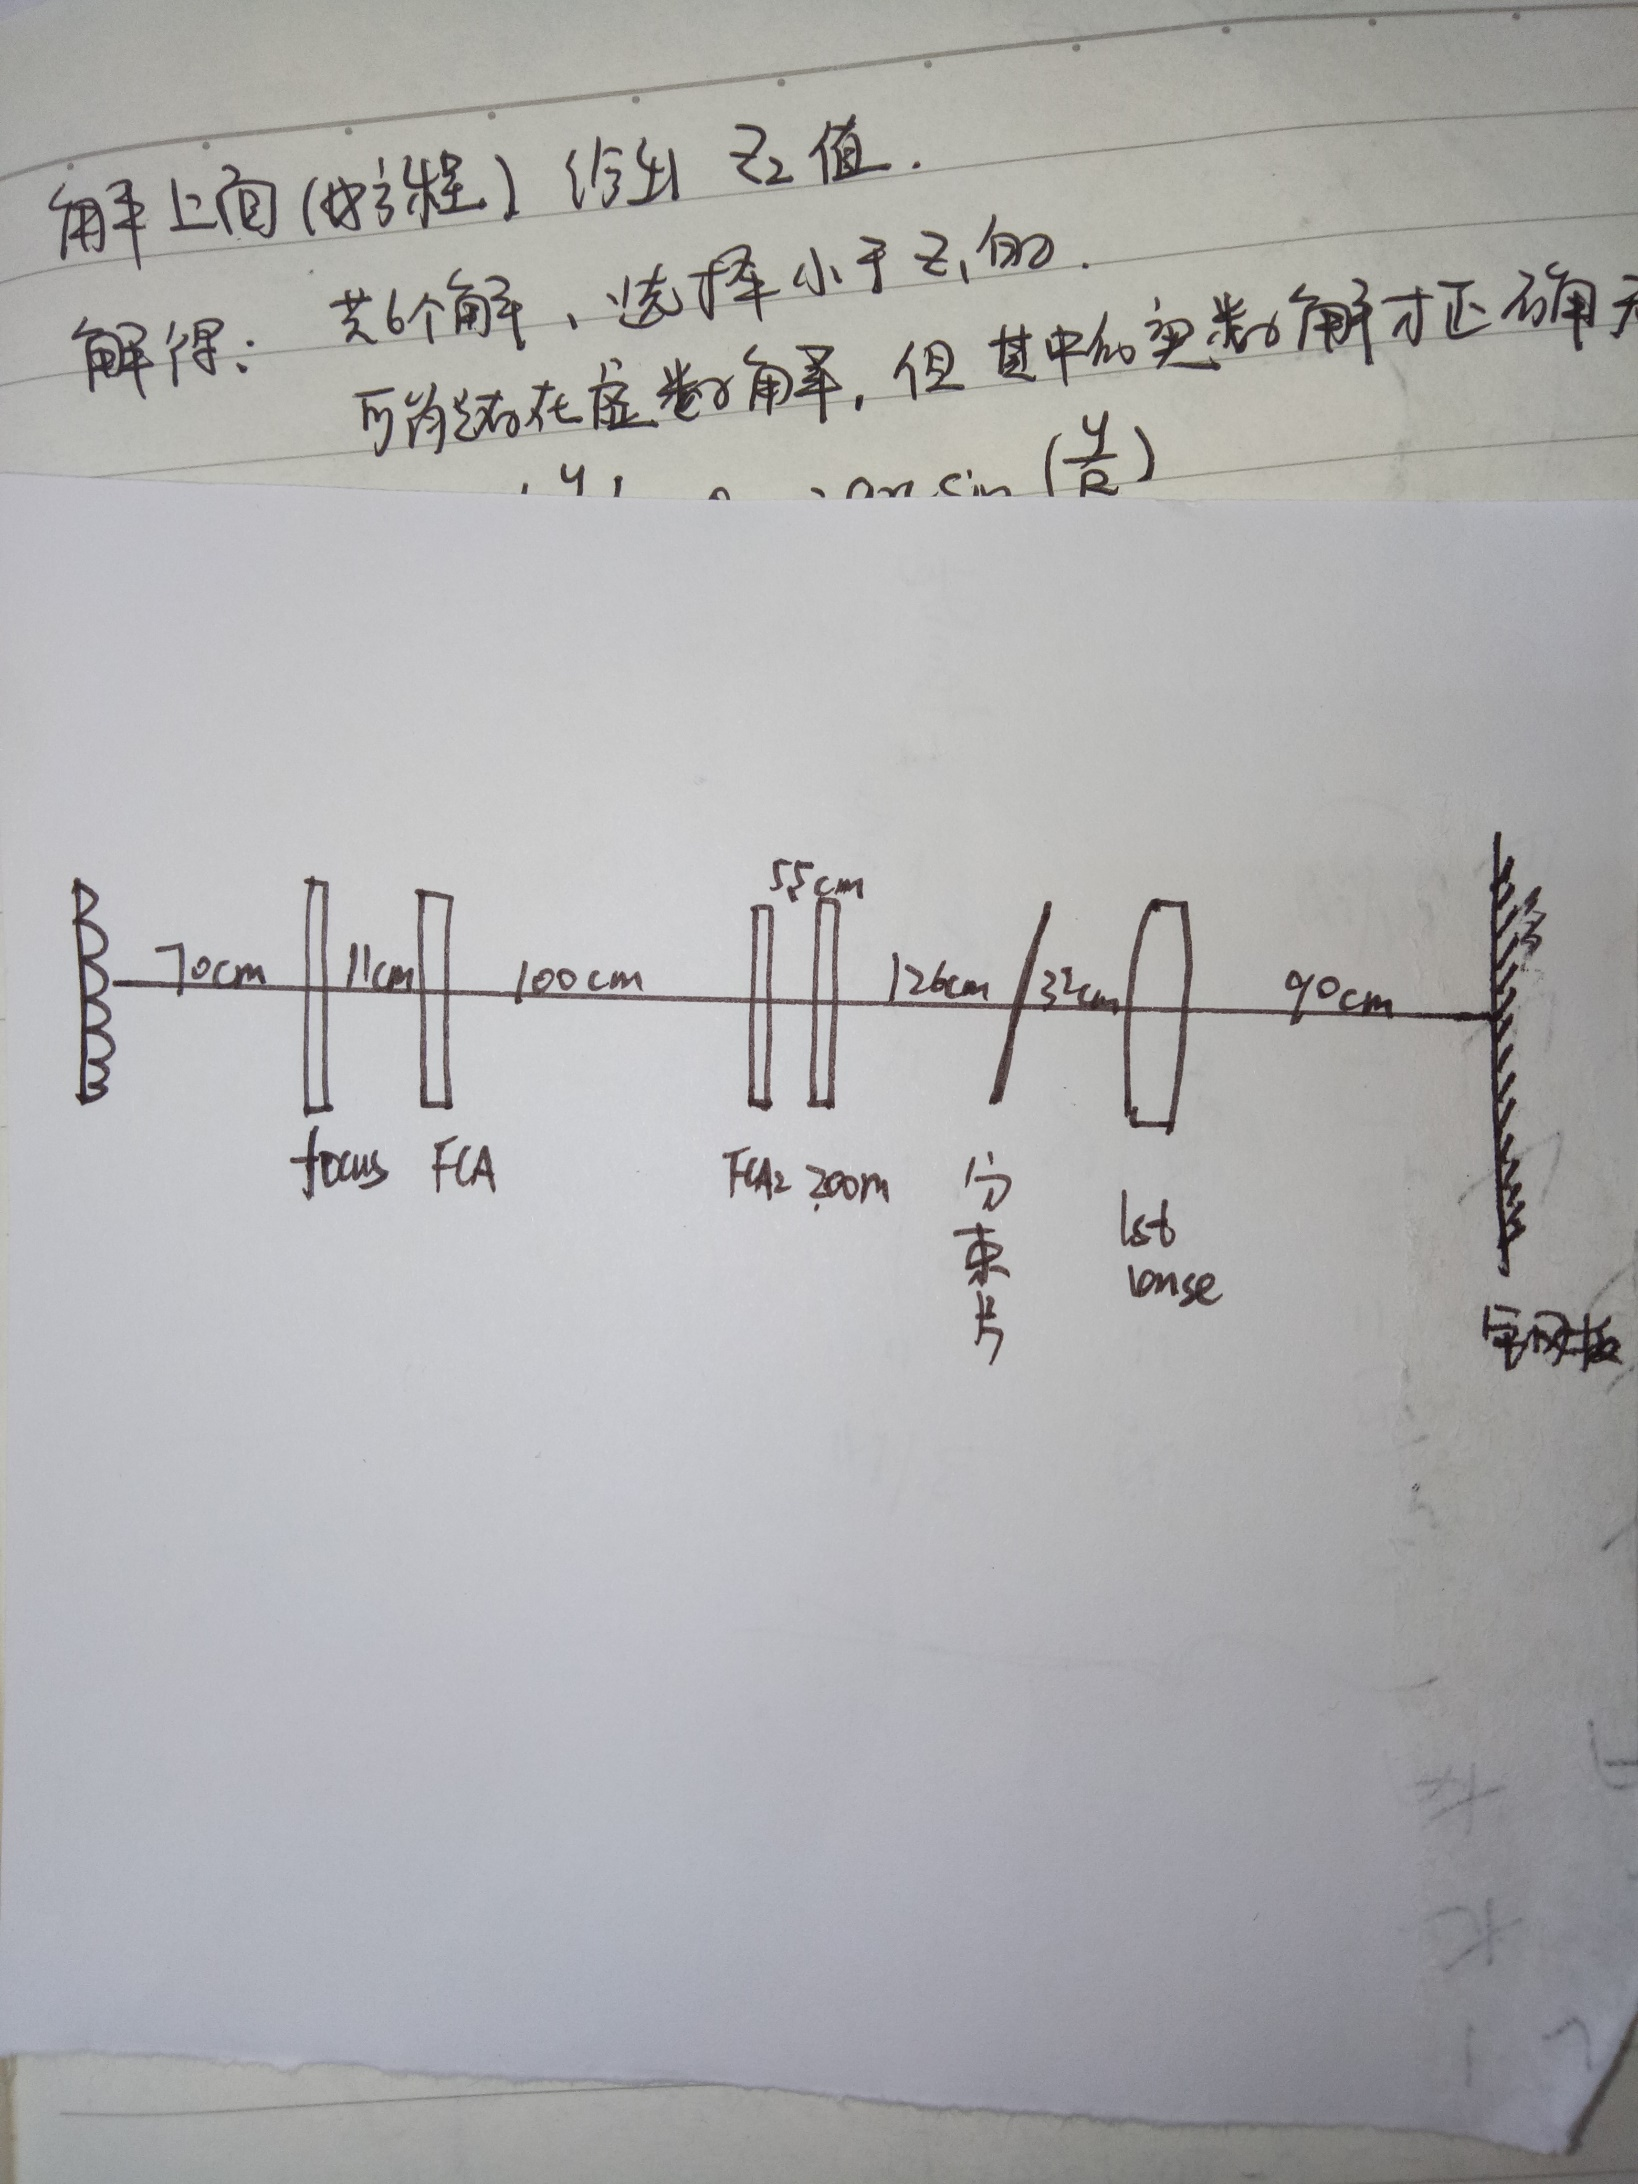 解上面(的方程)给出 Z₂ 值.
解得: 共6个解、选择小于 Z₁ 的.
可能存在虚数解, 但其中的实数解才正确
arcsin (y/R)
55cm
70cm 11cm 100cm 126cm 32cm 90cm
focus FCA FCA₂ zoom 分束片 1st lense